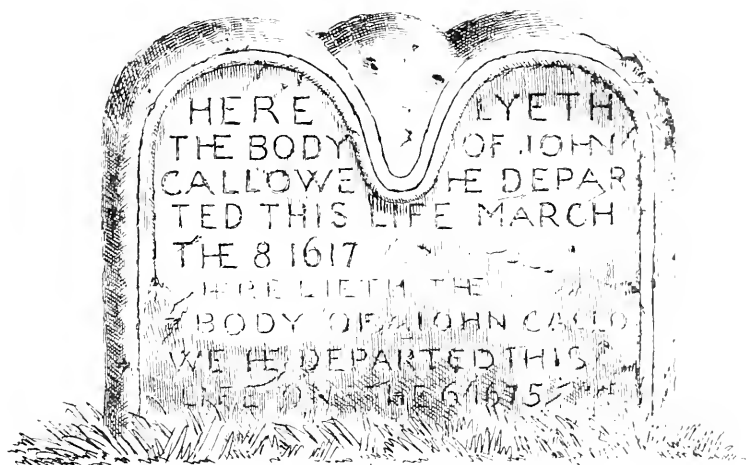 HERE LYETH
THE BODY OF JOHN
CALLOWE HE DEPAR
TED THIS LIFE MARCH
THE 8 1617
HERE LIETH THE
BODY OF JOHN CALLO
WE HE DEPARTED THIS
LIFE ON THE 6 1675